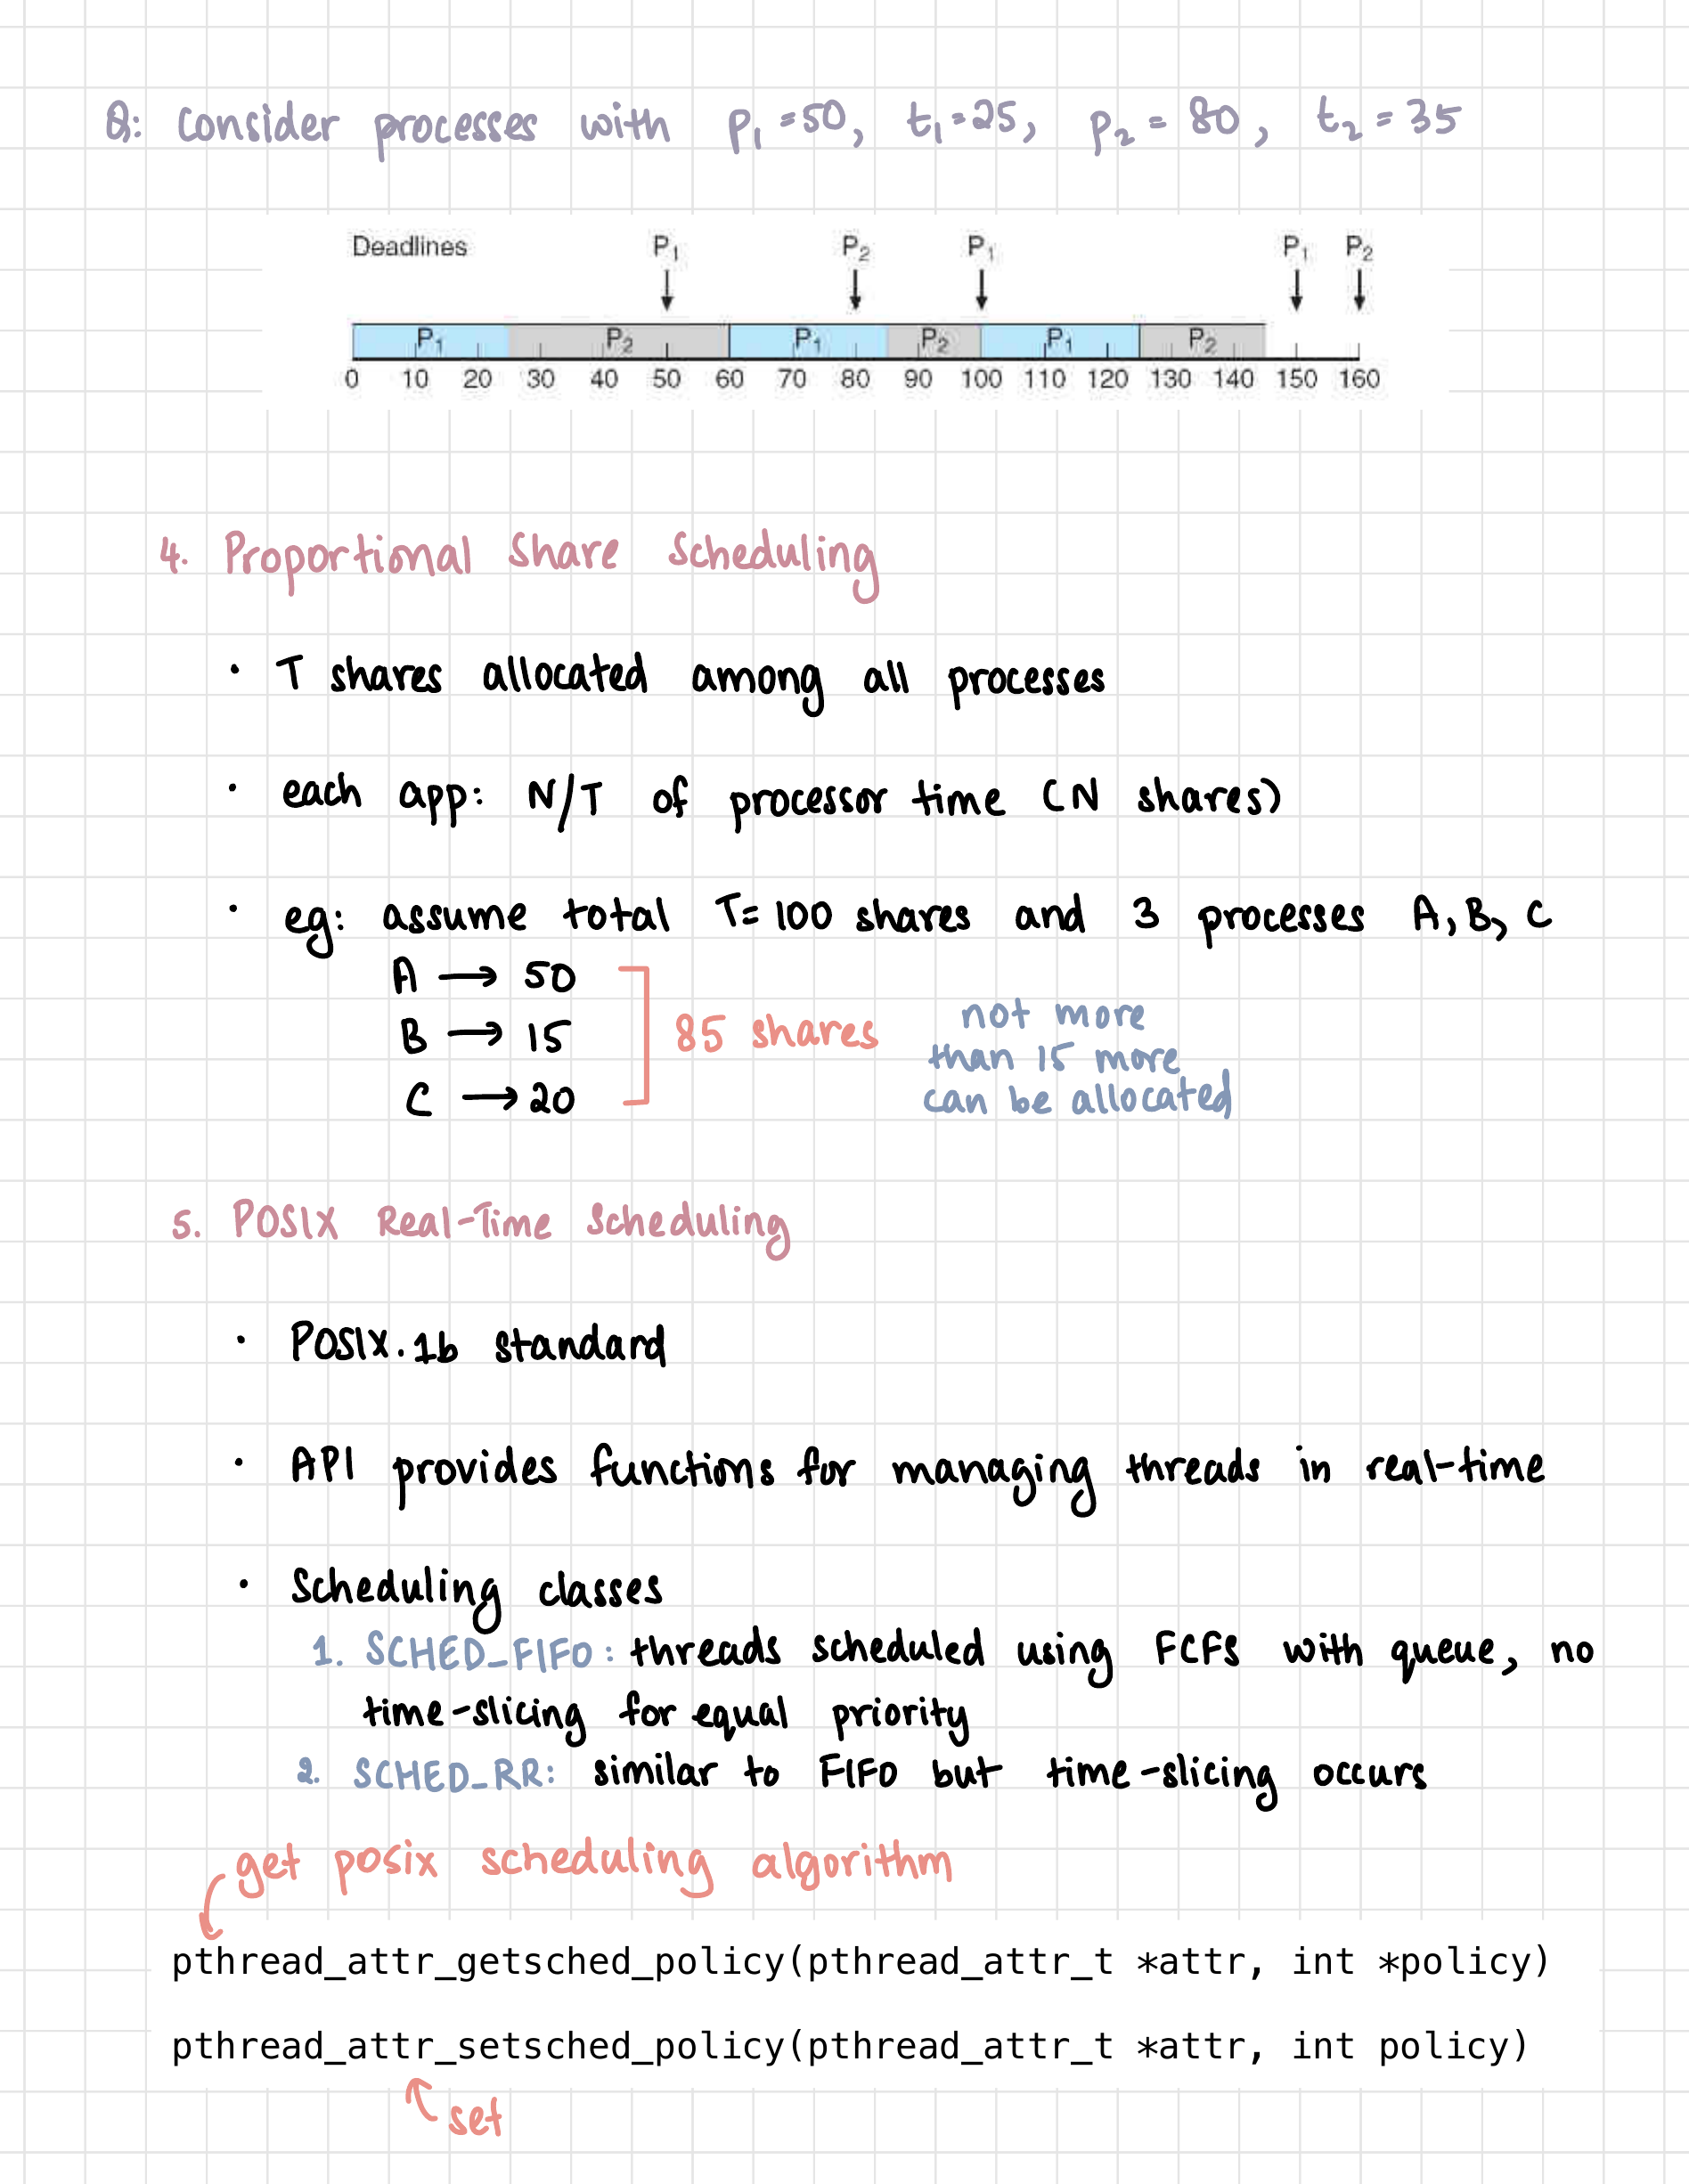 Q: consider processes with p₁ = 50, t₁ = 25, p₂ = 80, t₂ = 35
Deadlines P₁ P₂ P₁ P₁ P₂
P₁ P₂ P₁ P₂ P₁ P₂
0 10 20 30 40 50 60 70 80 90 100 110 120 130 140 150 160
4. Proportional Share Scheduling
• T shares allocated among all processes
• each app: N/T of processor time (N shares)
• eg: assume total T= 100 shares and 3 processes A, B, C
A → 50
B → 15
C → 20
85 shares
not more
than 15 more
can be allocated
5. POSIX Real-Time Scheduling
• POSIX.1b standard
• API provides functions for managing threads in real-time
• Scheduling classes
1. SCHED_FIFO: threads scheduled using FCFS with queue, no
time-slicing for equal priority
2. SCHED_RR: similar to FIFO but time-slicing occurs
get posix scheduling algorithm
pthread_attr_getsched_policy(pthread_attr_t *attr, int *policy)
pthread_attr_setsched_policy(pthread_attr_t *attr, int policy)
set